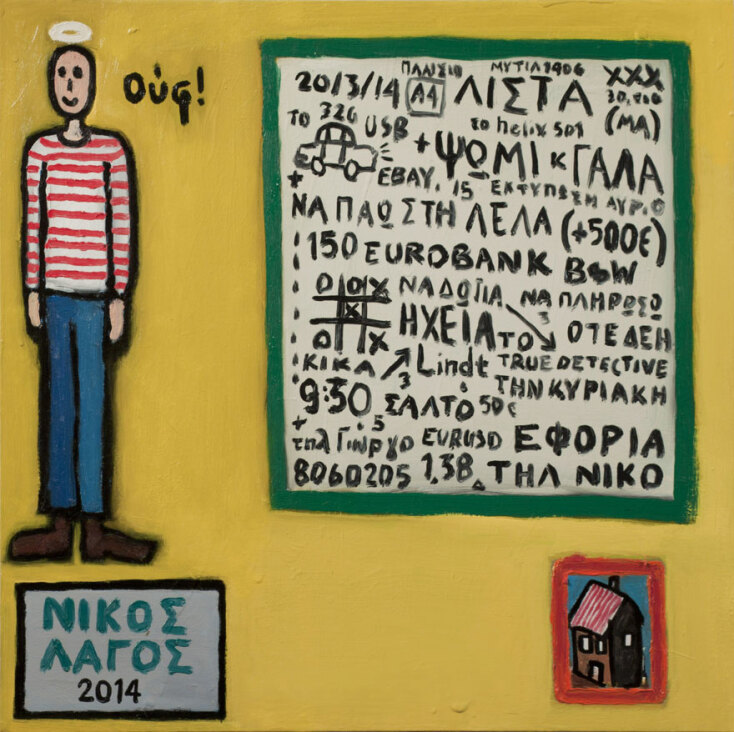 ούφ!
ΠΛΑΙΣΙΟ ΜΥΤΙΛ 1906
2013/14 A4 ΛΙΣΤΑ XXX
ΤΟ 320 USB το helix 501 (ΜΑ)
+ ΨΩΜΙ κ ΓΑΛΑ
+ EBAY. 15 ΕΚΤΥΠΩΣΗ ΑΥΡΙΟ
ΝΑ ΠΑΩ ΣΤΗ ΛΕΛΑ (+500€)
150 EUROBANK B@W
ΝΑ ΔΩ ΓΙΑ ΝΑ ΠΛΗΡΩΣΩ
ΗΧΕΙΑ ΤΟ 3 ΟΤΕ ΔΕΗ
ΚΙΚΑ 3 Lindt TRUE DETECTIVE
9:30 ΣΑΛΤΟ 50€ ΤΗΝ ΚΥΡΙΑΚΗ
+ τηλ Γιώργο 5 EURUSD ΕΦΟΡΙΑ
8060205 1,38 ΤΗΛ ΝΙΚΟ
ΝΙΚΟΣ
ΛΑΓΟΣ
2014